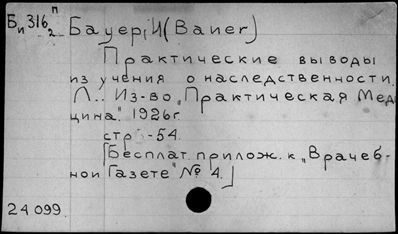 Би 316 п/2 Бауер, И (Bauer)
Практические выводы
из учения о наследственности.
Л.. Из-во „Практическая Меди
цина". 1926г.
стр 3-54.
[Бесплат. прилож. к „Врачеб-
ной Газете" № 4.]
24 099.